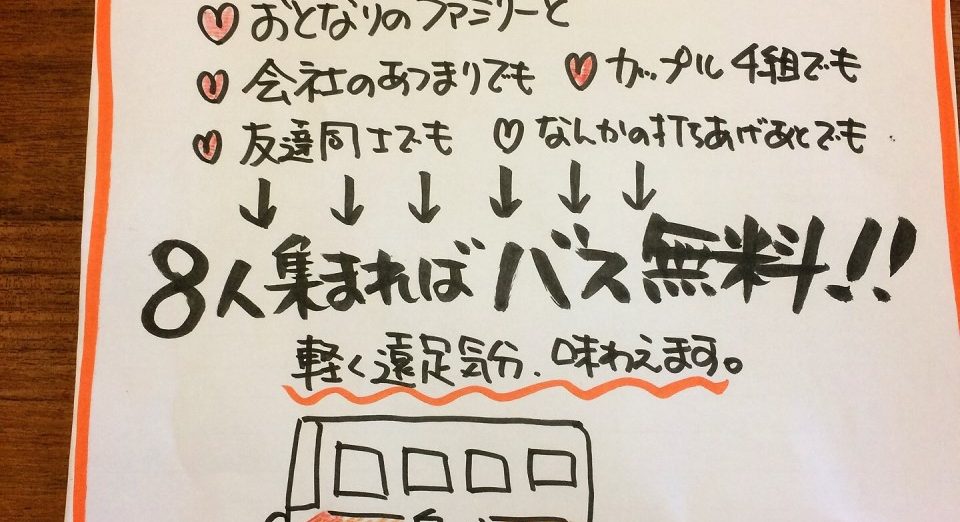 おとなりのファミリーと
会社のあつまりでも カップル4組でも
友達同士でも なんかの打ちあげあとでも
8人集まればバス無料!!
軽く遠足気分、味わえます。